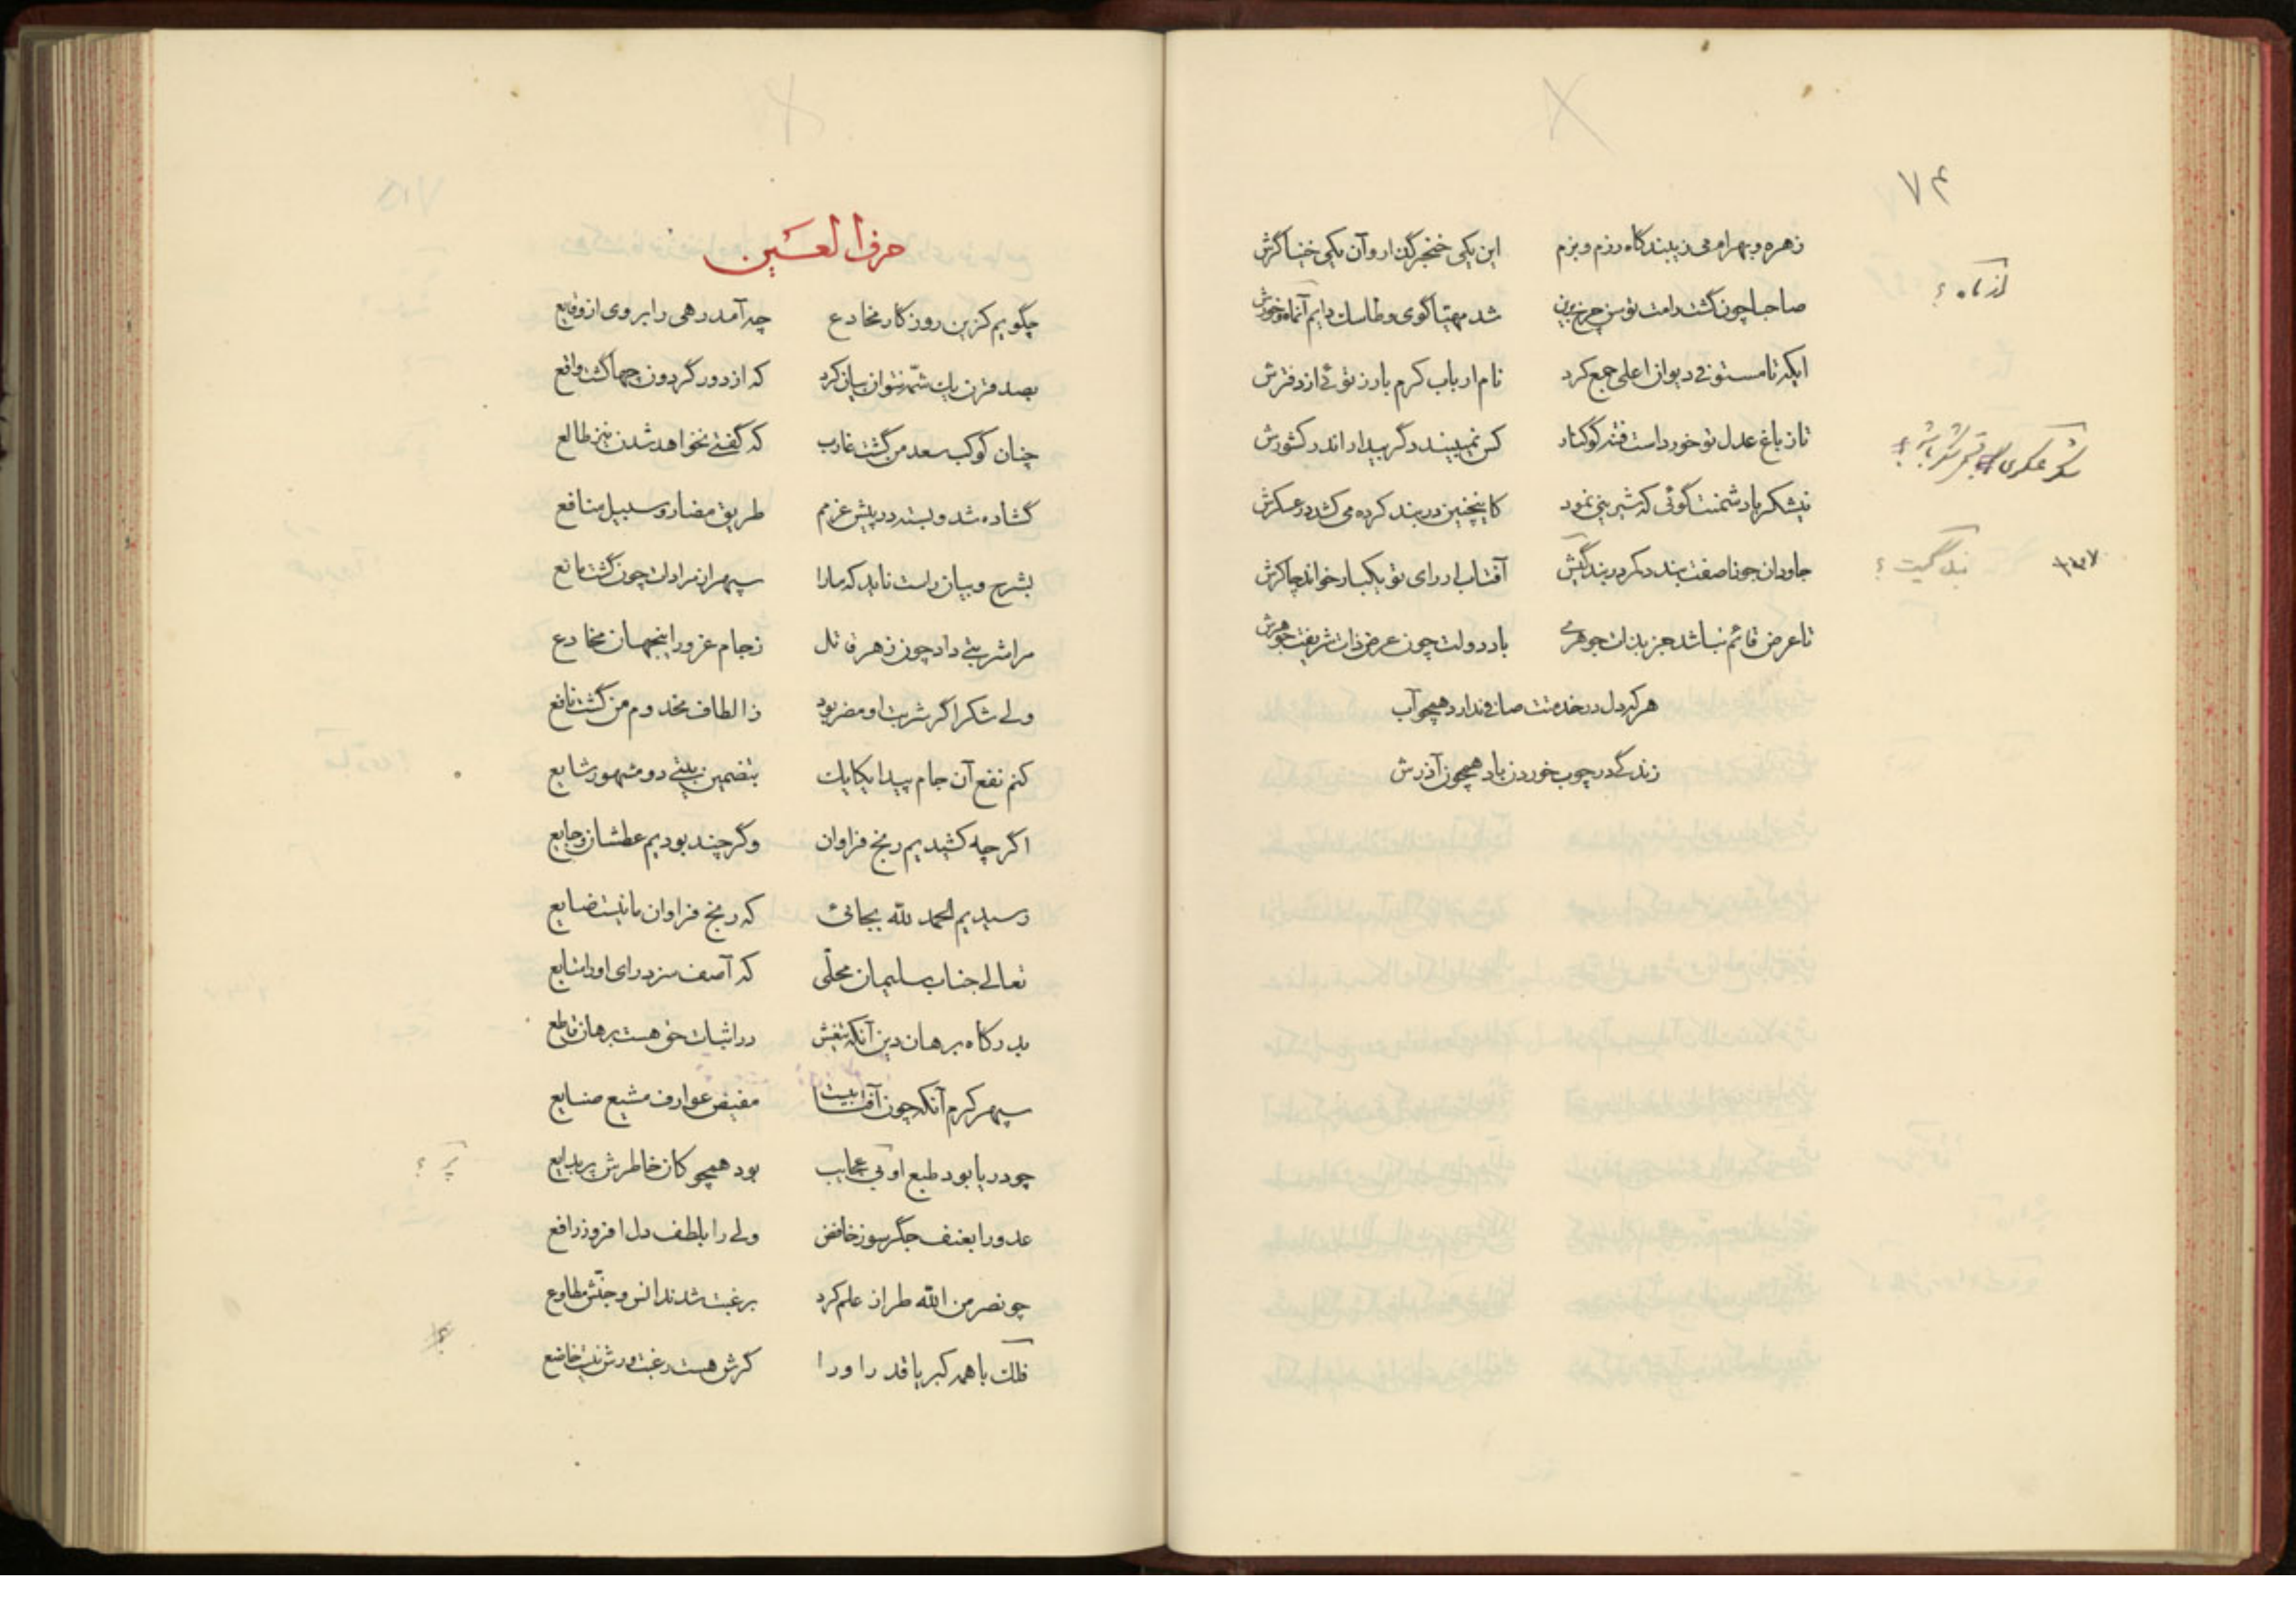 ۷۴
زهره و بهرام می زیبند گاه رزم و بزم این یکی خنجر گذار و آن یکی خنیاگرش
صاحبا چون گشت رامت توسن چرخ برین شد مهیا گوی و طاسک دایم آنماه و خورش
ایکه تا مستوفی دیوان اعلی جمع کرد نام ارباب کرم بارز توئی از دفترش
تا ز باغ عدل تو خورداست فتنه کوکنار کس نمیبیند دگر بیدار اندر کشورش
نیشکر با دشمنت گوئی که شیرینی نمود کاینچنین در بند کرده می کشد در عسکرش
جاودان جوزا صفت بندد کمر در بندگیش آفتاب ار رای تو یکبار خواند چاکرش
تا عرض قائم نباشد جز بذات جوهری باد دولت چون عرض ذات شریفت جوهرش
هر که دل در خدمتت صافی ندارد همچو آب
زندگی در چوب خوردن باد همچون آذرش
از ماه ؟
بندگیت ؟
حرف العین
چگویم کزین روزگار مخادع چه آمد رهی را بروی از وقایع
بصد قرن یک شمه نتوان بیان کرد که از دور گردون چها گشت واقع
چنان کوکب سعد من گشت غارب که گفتی نخواهد شدن نیز طالع
گشاده شد و بسته در پیش عزمم طریق مضار و سبیل منافع
بشرح و بیان راست ناید که ما را سپهر از مرادات چون گشت مانع
مرا شربتی داد چون زهر قاتل ز جام غرور اینجهان مخادع
ولی شکر اگر شربت او مضر بود ز الطاف مخدوم من گشت نافع
کنم نفع آن جام پیدا یکایک بتضمین بیتی دو مشهور شایع
اگر چه کشیدیم رنج فراوان وگر چند بودیم عطشان و جایع
رسیدیم الحمد لله بجائی که رنج فراوان ما نیست ضایع
تعالی جناب سلیمان محلی که آصف سزد رای او را متابع
بدرگاه برهان دین آنکه تیغش در اثبات حق هست برهان قاطع
سپهر کرم آنکه چون آفتابیست مفیض عوارف مشیع صنایع
چو دریا بود طبع او پی عجایب بود همچو کان خاطرش پر بدایع
پر ؟
عدو را بعنف جگر سوز خافض ولی را بلطف دل افروز رافع
چو نصر من الله طراز علم کرد برغبت شدند انس و جنش مطاوع
فلک با همه کبریا قدر او را گرش هست رغبت ورش نیست خاضع